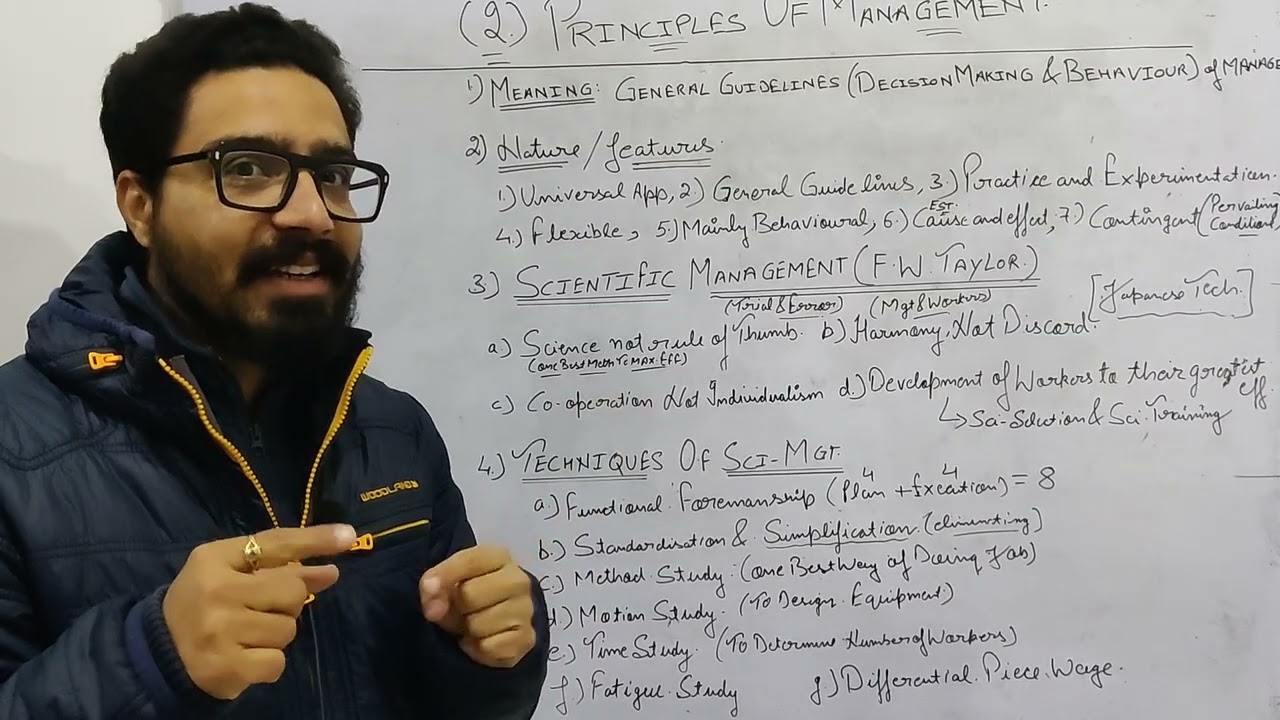 (2.) PRINCIPLES OF MANAGEMENT.
1) MEANING: GENERAL GUIDELINES (DECISION MAKING & BEHAVIOUR) of MANAGE
2) Nature / features.
1) Universal App, 2.) General Guide lines, 3.) Practice and Experimentation.
4.) flexible, 5.) Mainly Behavioural, 6.) Cause and effect, 7.) Contingent (Pervailing Conditions)
EST.
3) SCIENTIFIC MANAGEMENT (F.W. TAYLOR.)
(Trial & Error) (Mgt & Workers) [Japanese Tech.]
a.) Science not rule of Thumb. b) Harmony, Not Discord.
(One Best Meth To MAX. Eff)
c) Co-operation Not Individualism d.) Development of Workers to their greatest eff
↳ Sci-Selection & Sci. Training
4.) TECHNIQUES OF SCI-MGT.
a.) Functional Foremanship (Plan + Execution) = 8
4 4
b.) Standardisation & Simplification. (eliminating)
c.) Method. Study: (One Best Way of Doing Job)
d.) Motion Study. (To Design Equipment)
e.) Time Study. (To Determine Number of Workers)
f) Fatigue Study g) Differential. Piece. Wage.
WOODLANDS